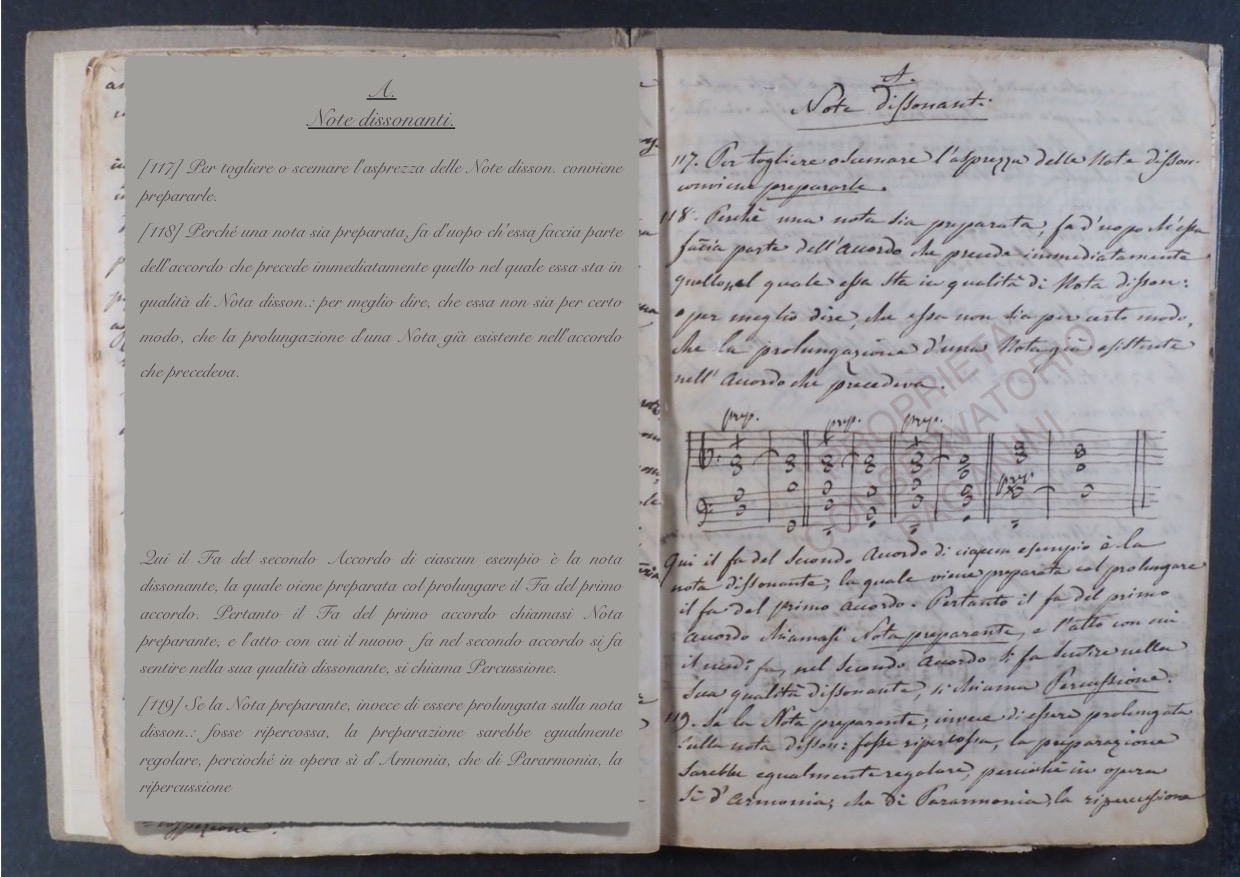 A.
Note dissonanti.
[117] Per togliere o scemare l'asprezza delle Note disson. conviene
prepararle.
[118] Perché una nota sia preparata, fa d'uopo ch'essa faccia parte
dell'accordo che precede immediatamente quello nel quale essa sta in
qualità di Nota disson.: per meglio dire, che essa non sia per certo
modo, che la prolungazione d'una Nota già esistente nell'accordo
che precedeva.
Qui il Fa del secondo Accordo di ciascun esempio è la nota
dissonante, la quale viene preparata col prolungare il Fa del primo
accordo. Pertanto il Fa del primo accordo chiamasi Nota
preparante, e l'atto con cui il nuovo fa nel secondo accordo si fa
sentire nella sua qualità dissonante, si chiama Percussione.
[119] Se la Nota preparante, invece di essere prolungata sulla nota
disson.: fosse ripercossa, la preparazione sarebbe egualmente
regolare, perciocché in opera sì d'Armonia, che di Pararmonia, la
ripercussione
A.
Note dissonanti.
117. Per togliere o scemare l'asprezza delle Note disson.
conviene prepararle.
118. Perchè una nota sia preparata, fa d'uopo ch'essa
faccia parte dell'accordo che precede immediatamente
quello nel quale essa sta in qualità di Nota disson:
o per meglio dire, che essa non sia per certo modo,
che la prolungazione d'una Nota già esistente
nell'Accordo che precedeva.
prep. prep. prep.
prep.
Qui il fa del secondo Accordo di ciascun esempio è la
nota dissonante, la quale viene preparata col prolungare
il fa del primo accordo. Pertanto il fa del primo
accordo chiamasi Nota preparante, e l'atto con cui
il fa, nel secondo Accordo si fa sentire nella
sua qualità dissonante, si chiama Percussione.
119. Se la Nota preparante, invece di essere prolungata
sulla nota disson: fosse ripercossa, la preparazione
sarebbe egualmente regolare, perciochè in opera
sì d'Armonia, che di Pararmonia, la ripercussione
PROPRIETA'
CONSERVATORIO
PAGANINI